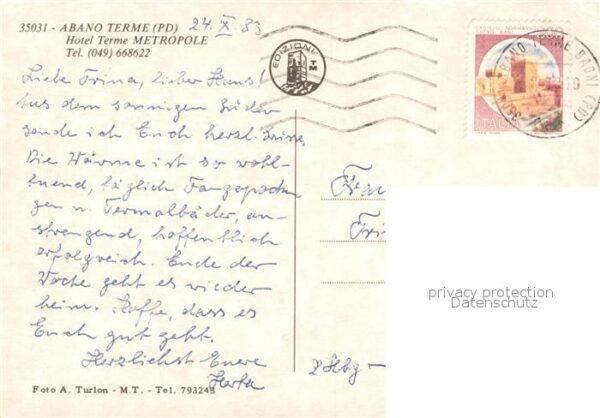 35031 - ABANO TERME (PD)
Hotel Terme METROPOLE
Tel. (049) 668622
24. X. 83
EDIZIONI
TM
ITALIA
ABANO TERME BAGNI (PD)
Liebe Trina, lieber Hans!
Aus dem sonnigen Süden
sende ich Euch herzl. Grüsse.
Die Wärme ist so wohl-
tuend, täglich Fangopackun
gen u. Termalbäder, an-
strengend, hoffentlich
erfolgreich. Ende der
Woche geht es wieder
heim. Hoffe, dass es
Euch gut geht.
Herzlichst Euere
Herta
Foto A. Turlon - M.T. - Tel. 793243
Frau
Tri
2 Hbg -
privacy protection
Datenschutz